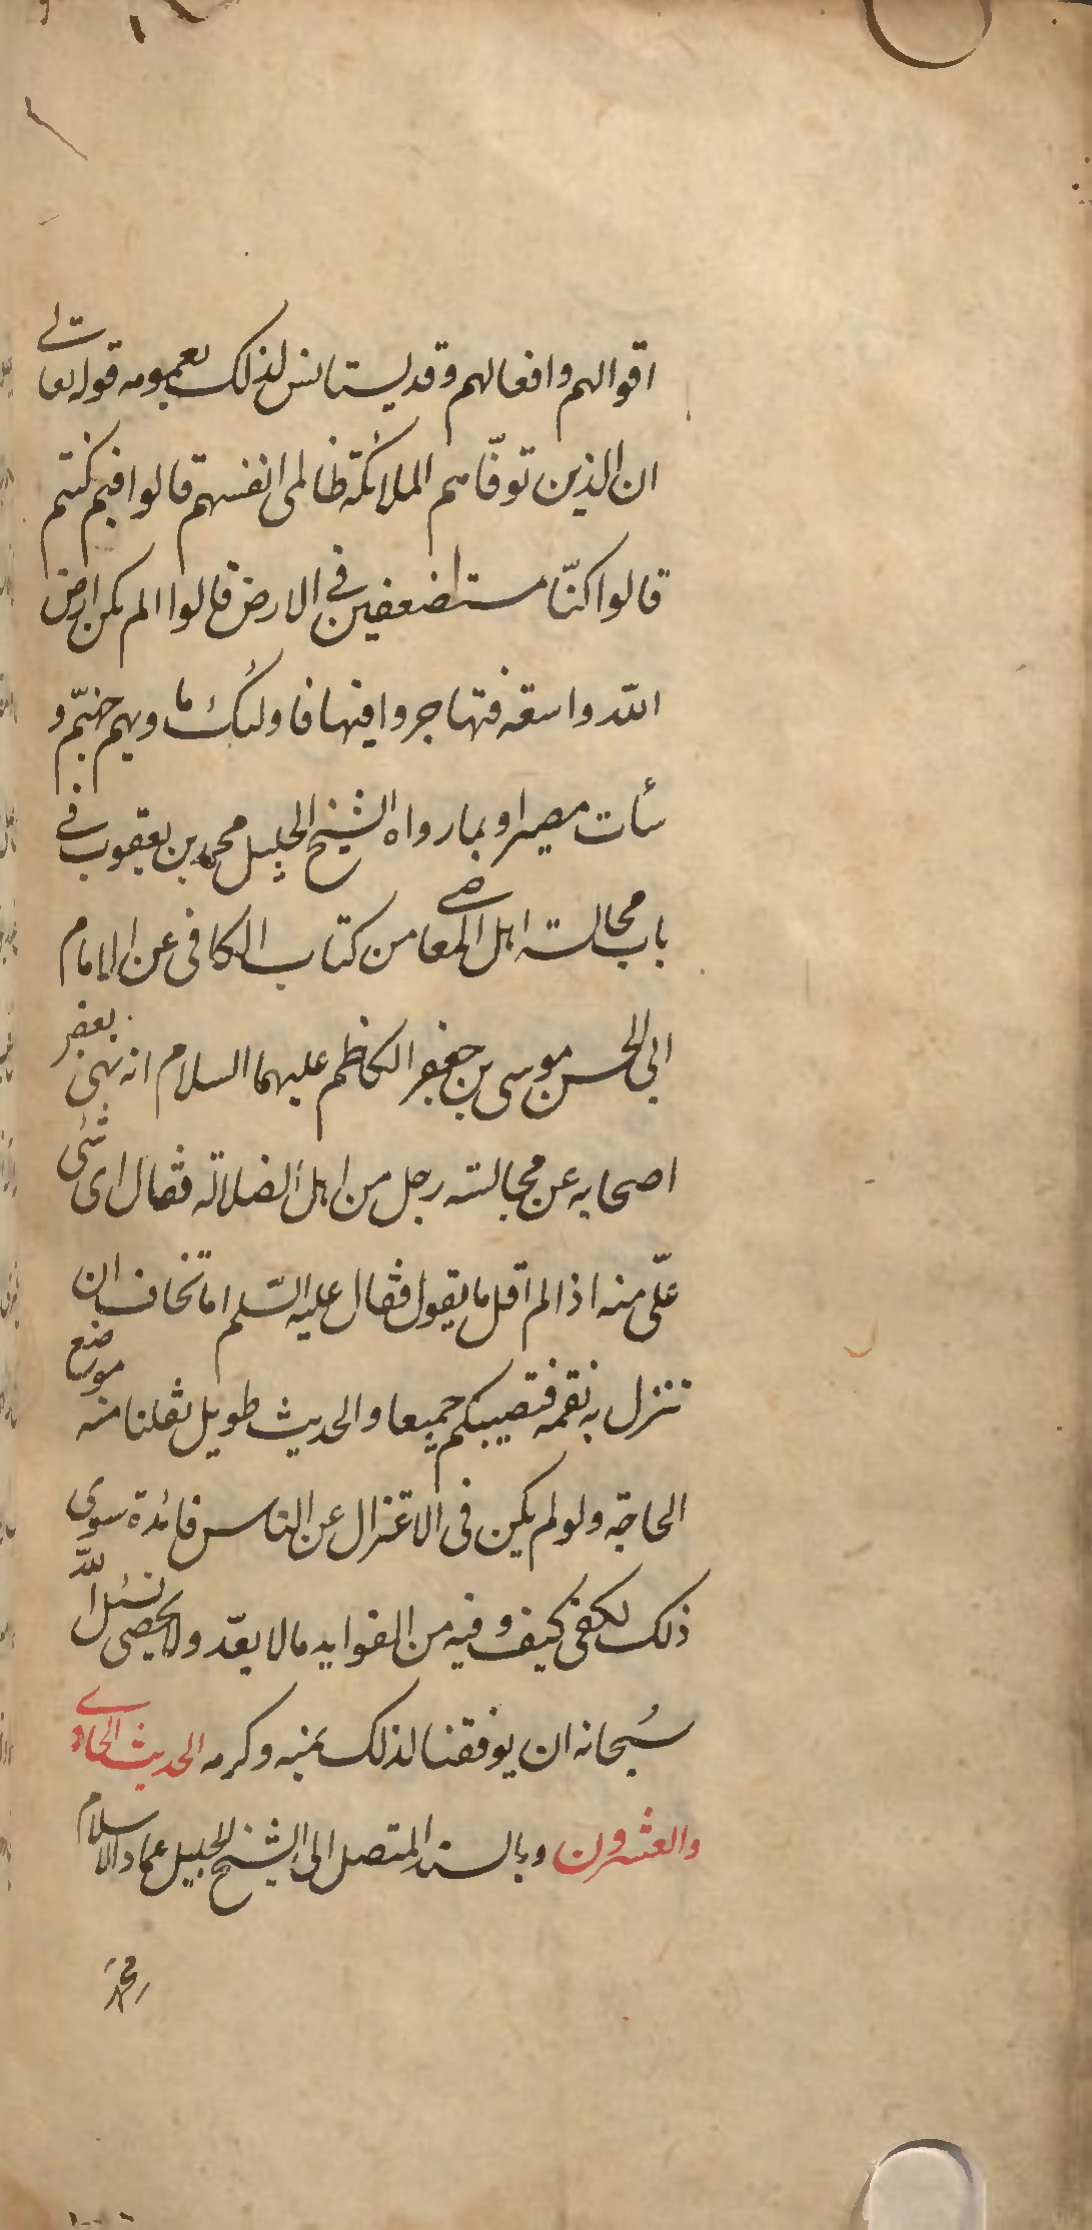 اقوالهم وافعالهم وقد يستانس لذلك بعمومه قوله تعالى
ان الذين توفّاهم الملائكة ظالمى انفسهم قالوا فيم كنتم
قالوا كنّا مستضعفين فى الارض قالوا الم يكن ارض
اللّه واسعة فتهاجروا فيها فاولئك ماويهم جهنّم و
سأت مصيرا وبما رواه الشيخ الجليل محمد بن يعقوب فى
باب مجالسة اهل المعاصى من كتاب الكافى عن الامام
ابى الحسن موسى بن جعفر الكاظم عليهما السلام انه نهى بعض
اصحابه عن مجالسته رجل من اهل الضلالة فقال اى شئى
علّى منه اذا لم اقل ما يقول فقال عليه السّلم اما تخاف ان
تنزل به نقمة فتصيبكم جميعا والحديث طويل نقلنا منه موضع
الحاجة ولو لم يكن فى الاعتزال عن الناس فائدة سوى
ذلك لكفى كيف وفيه من الفوايد ما لا يعدّ ولا يحصى نسئل اللّه
سُبحانه ان يوفقنا لذلك بمنه وكرمه الحديث الحادى
والعشرون وبالسند المتصل الى الشيخ الجليل عماد الاسلام
محمد